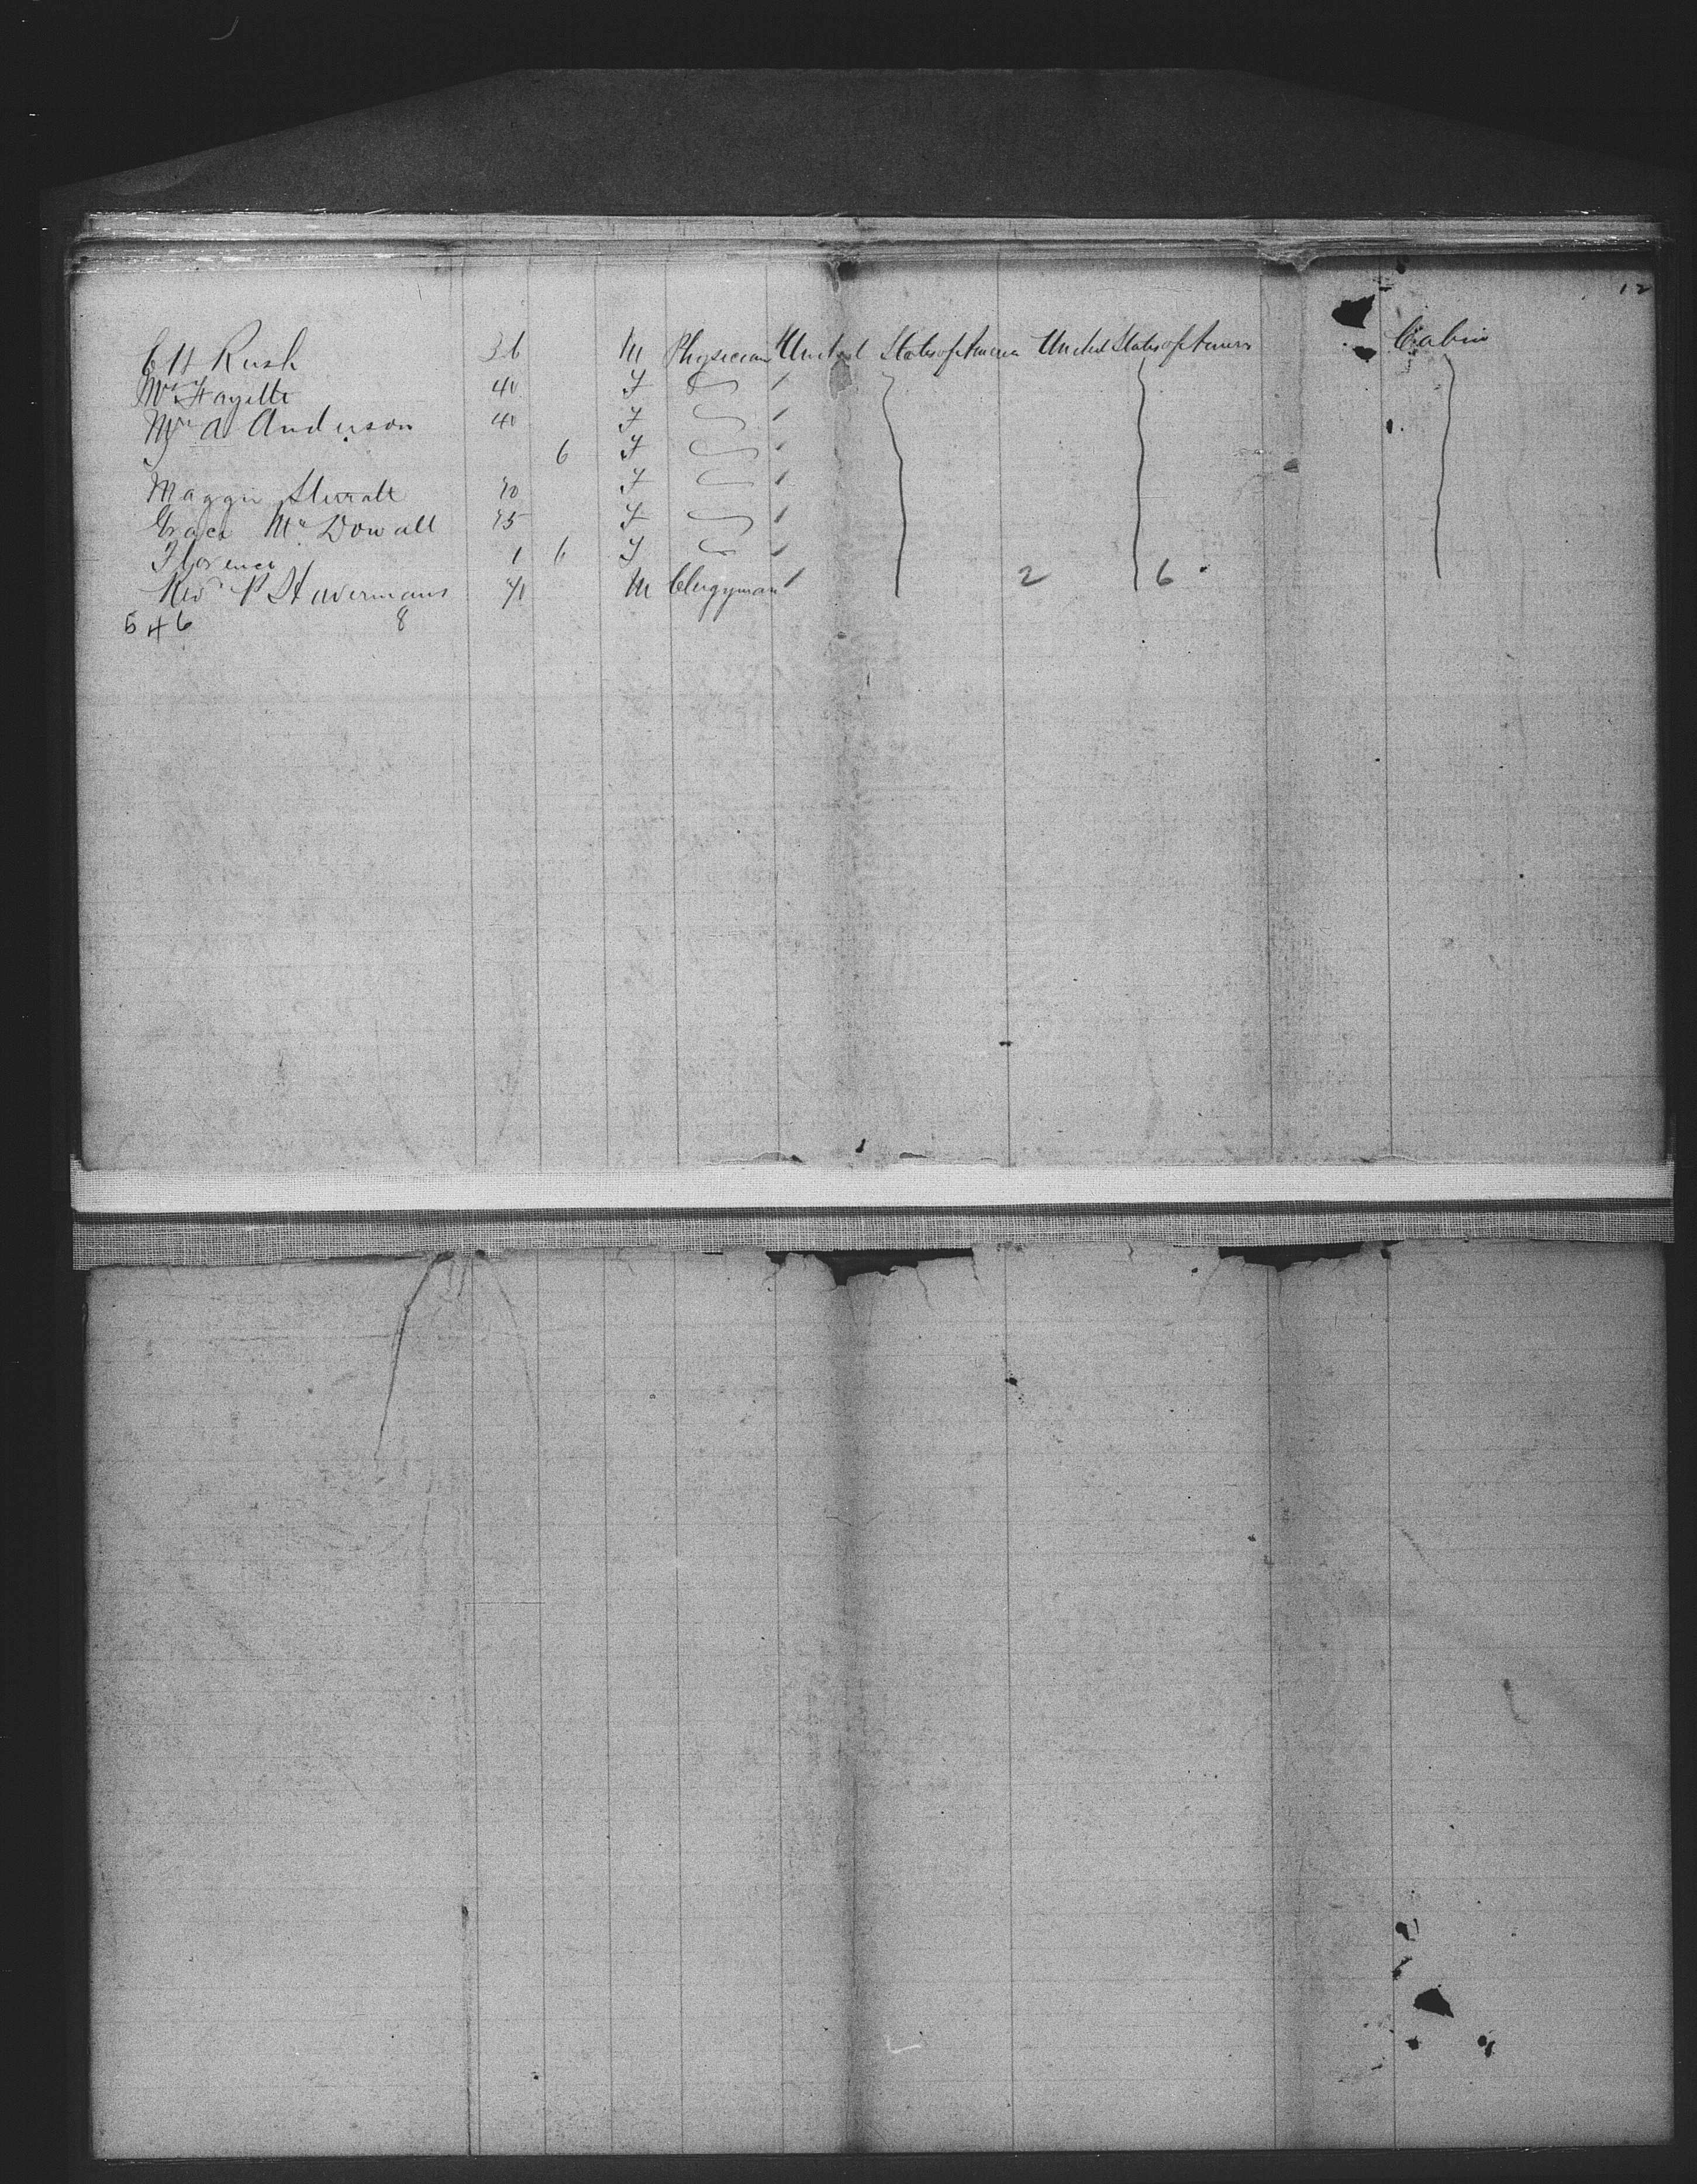 12
C H Rush 36 M Physician United States of America United States of America Cabin
Mrs Fayette 40 F
Mrs A Anderson 40 F
6 F
Maggie F
Grace McDowall F
Florence 1 6 F
Rev P Havermans M Clergyman 2 6
546 8